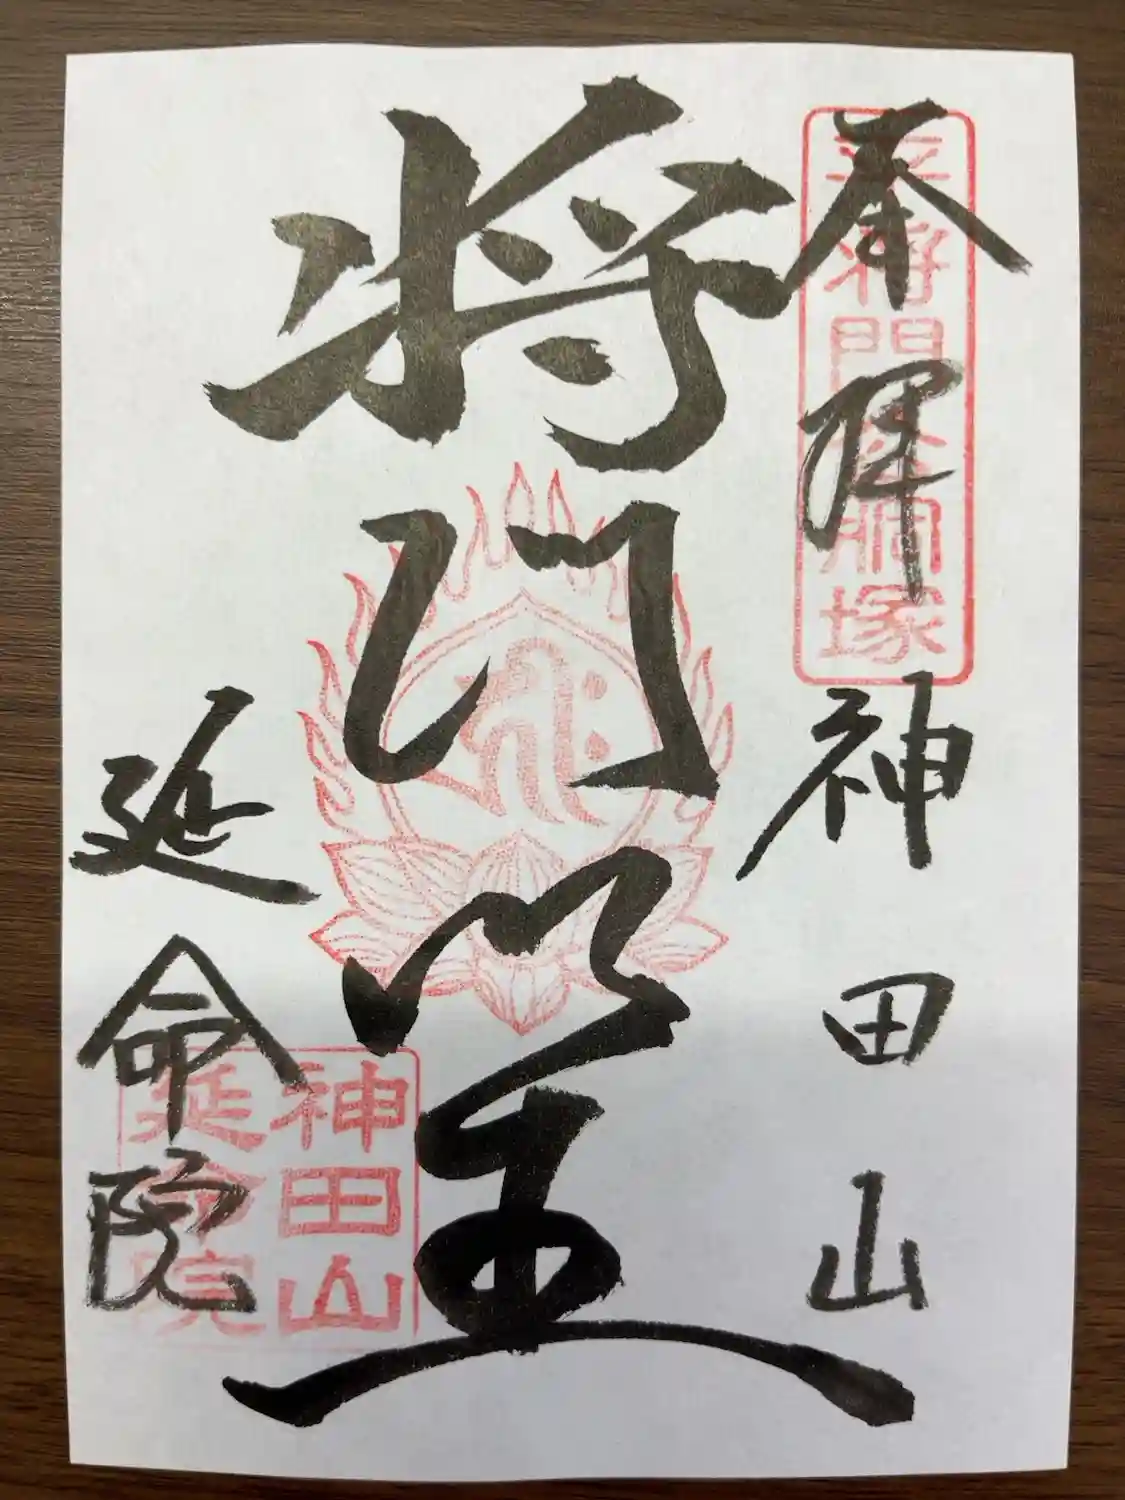 奉拝
神田山
平将門公胴塚
将門堂
延命院
神田山
延命院